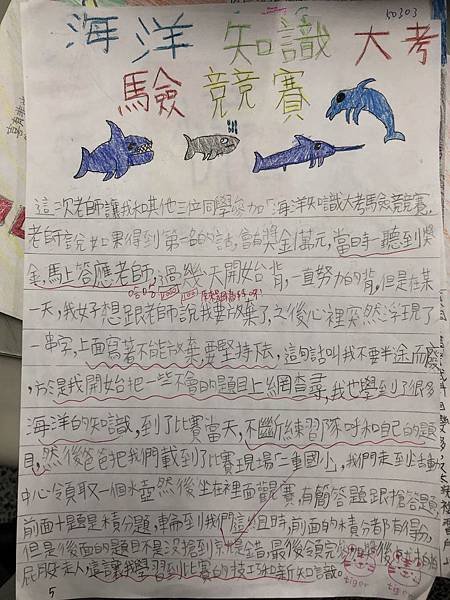 50303
海洋知識大考
驗競賽
這次老師讓我和其他三位同學參加「海洋知識大考驗競賽」,
老師說如果得到第一名的話,會有獎金萬元,當時一聽到獎
金,馬上答應老師,過幾天開始背,一直努力的背,但是在某
一天,我好想跟老師說我要放棄了,之後心裡突然浮現了
一串字,上面寫著不能放棄要堅持下去,這句話叫我不要半途而廢
,於是我開始把一些不會的題目上網查尋,我也學到了很多
海洋的知識,到了比賽當天,不斷練習隊呼和自己的題
目,然後爸爸把我們載到了比賽現場二重國小,我們走到活動
中心領取一個水壺然後坐在裡面觀賽,有簡答題跟搶答題
前面十題是積分題,輪到我們這組時,前面的積分者都有得分,
但是後面的題目不是沒搶到就是錯,最後領完獎後
屁股走人,這讓我學習到比賽的技巧和新知識。
tiger
tiger
5